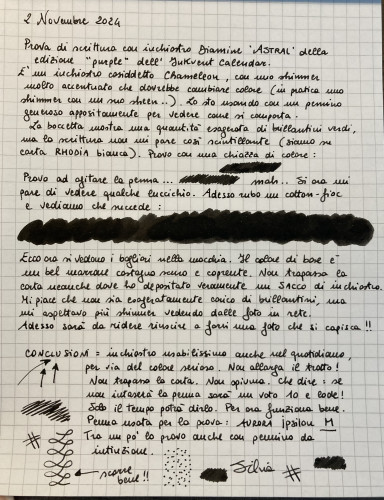 2 Novembre 2024
Prova di scrittura con inchiostro Diamine "ASTRAL" della
edizione "purple" dell' InkVent Calendar.
E' un inchiostro cosiddetto Chameleon, con uno shimmer
molto accentuato che dovrebbe cambiare colore (in pratica uno
shimmer con un suo sheen..). Lo sto usando con un pennino
generoso appositamente per vedere come si comporta.
La boccetta mostra una quantita' esagerata di brillantini verdi,
ma la scrittura non mi pare così scintillante (siamo su
carta RHODIA bianca). Provo con una chiazza di colore:
Provo ad agitare la penna... mah.. Si ora mi
pare di vedere qualche luccichio. Adesso rubo un cotton-fioc
e vediamo che succede:
Ecco ora si vedono i bagliori nella macchia. Il colore di base e'
un bel marrone castagna scuro e coprente. Non trapassa la
carta neanche dove ho depositato veramente un SACCO di inchiostro.
Mi piace che non sia esageratamente carico di brillantini, ma
mi aspettavo più shimmer vedendo dalle foto in rete.
Adesso sarà da ridere riuscire a farvi una foto che si capisca!!
CONCLUSIONI = inchiostro usabilissimo anche nel quotidiano,
per via del colore serioso. Non allarga il tratto!
Non trapassa la carta. Non spiuma. Che dire: se
non intaserà la penna sarà un voto 10 e lode!
Solo il tempo potrà dirlo. Per ora funziona bene.
Penna usata per la prova: AURORA Ipsilon M
Tra un po' lo provo anche con pennino da
intinzione.
scorre
bene!!
Silvia